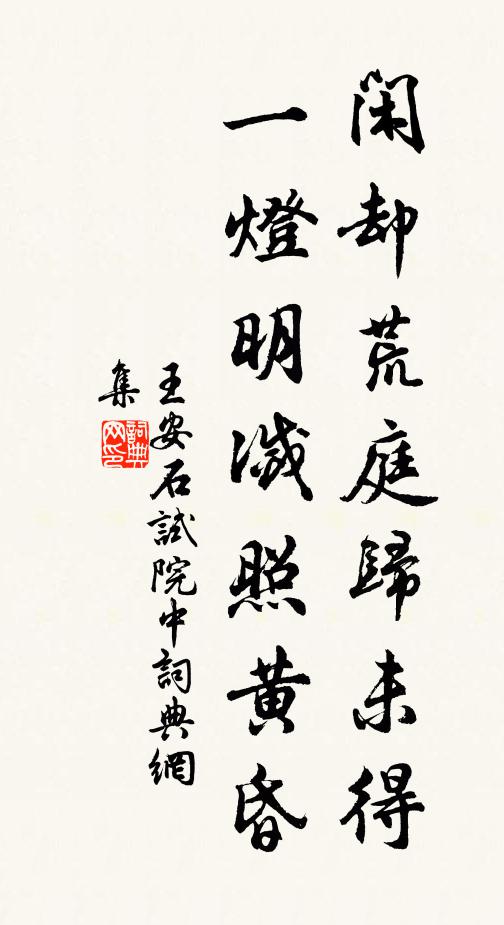 閑却荒庭歸未得
一燈明滅照黄昏
王安石試院中詞典網
集
詞典网印